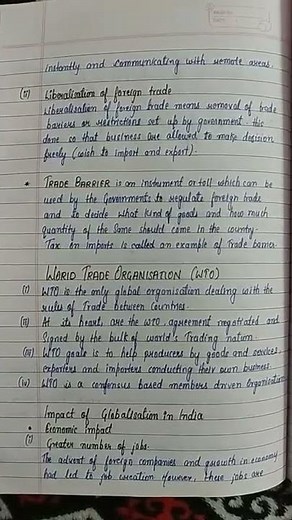 instantly and communicating with remote areas.
(ii) Liberalisation of foreign trade
Liberalisation of foreign trade means removal of trade
barriers or restrictions set up by government this
done so that business are allowed to make decision
freely (wish to import and export).
• TRADE BARRIER is an instrument or toll which can be
used by the Governments to regulate foreign trade
and to decide what kind of goods and how much
quantity of the same should come in the country.
Tax on imports is called an example of Trade barrier
WORLD TRADE ORGANISATION (WTO)
(i) WTO is the only global organisation dealing with the
rules of Trade between Countries.
(ii) At its heart, are the WTO, agreement negotiated and
Signed by the bulk of world's Trading nation.
(iii) WTO goals is to help producers by goods and services,
exporters and importers conducting their own business.
(iv) WTO is a consensus based members driven Organisation
Impact of Globalisation in India
• Economic impact
(i) Greater number of jobs.
The advent of foreign companies and growth in economy
had led to job creation However, these jobs are